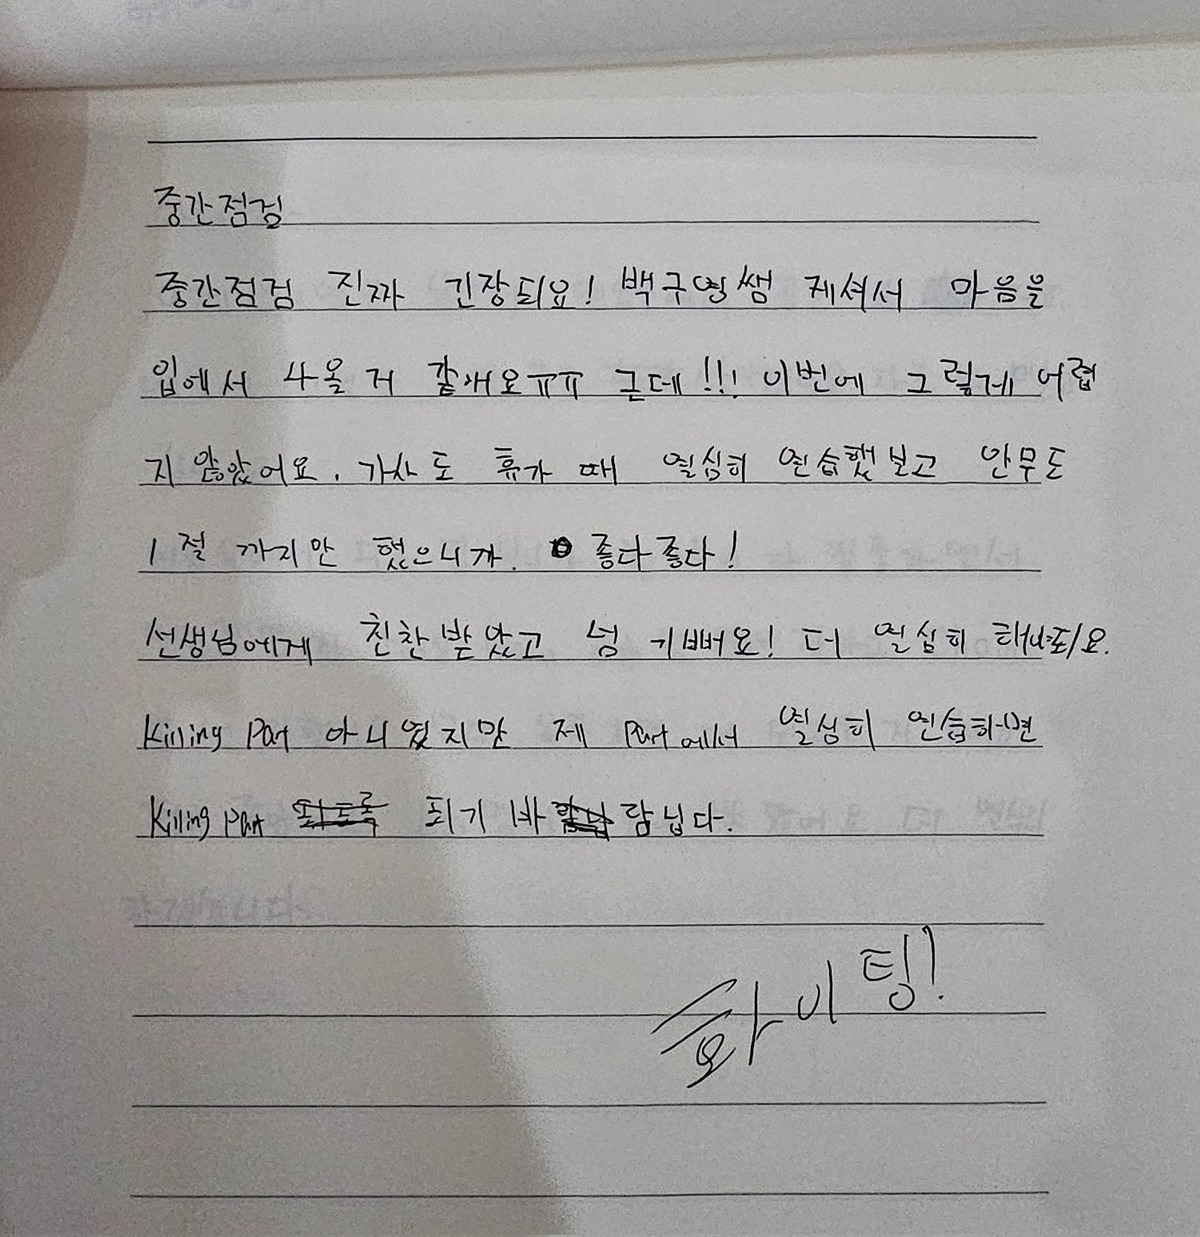 중간점검
중간점검 진짜 긴장되요! 백구영쌤 계셔서 마음을
입에서 나올 거 같애요ㅠㅠ 근데!!! 이번에 그렇게 어렵
지 않았어요. 가사도 휴가 때 열심히 연습했보고 안무도
1절 까지만 했으니까. 좋다좋다!
선생님에게 친찬 받았고 넘 기뻐요! 더 열심히 해냐되요.
Killing Part 아니였지만 제 Part에서 열심히 연습하면
Killing Part 되기 바람닙다.
화이팅!